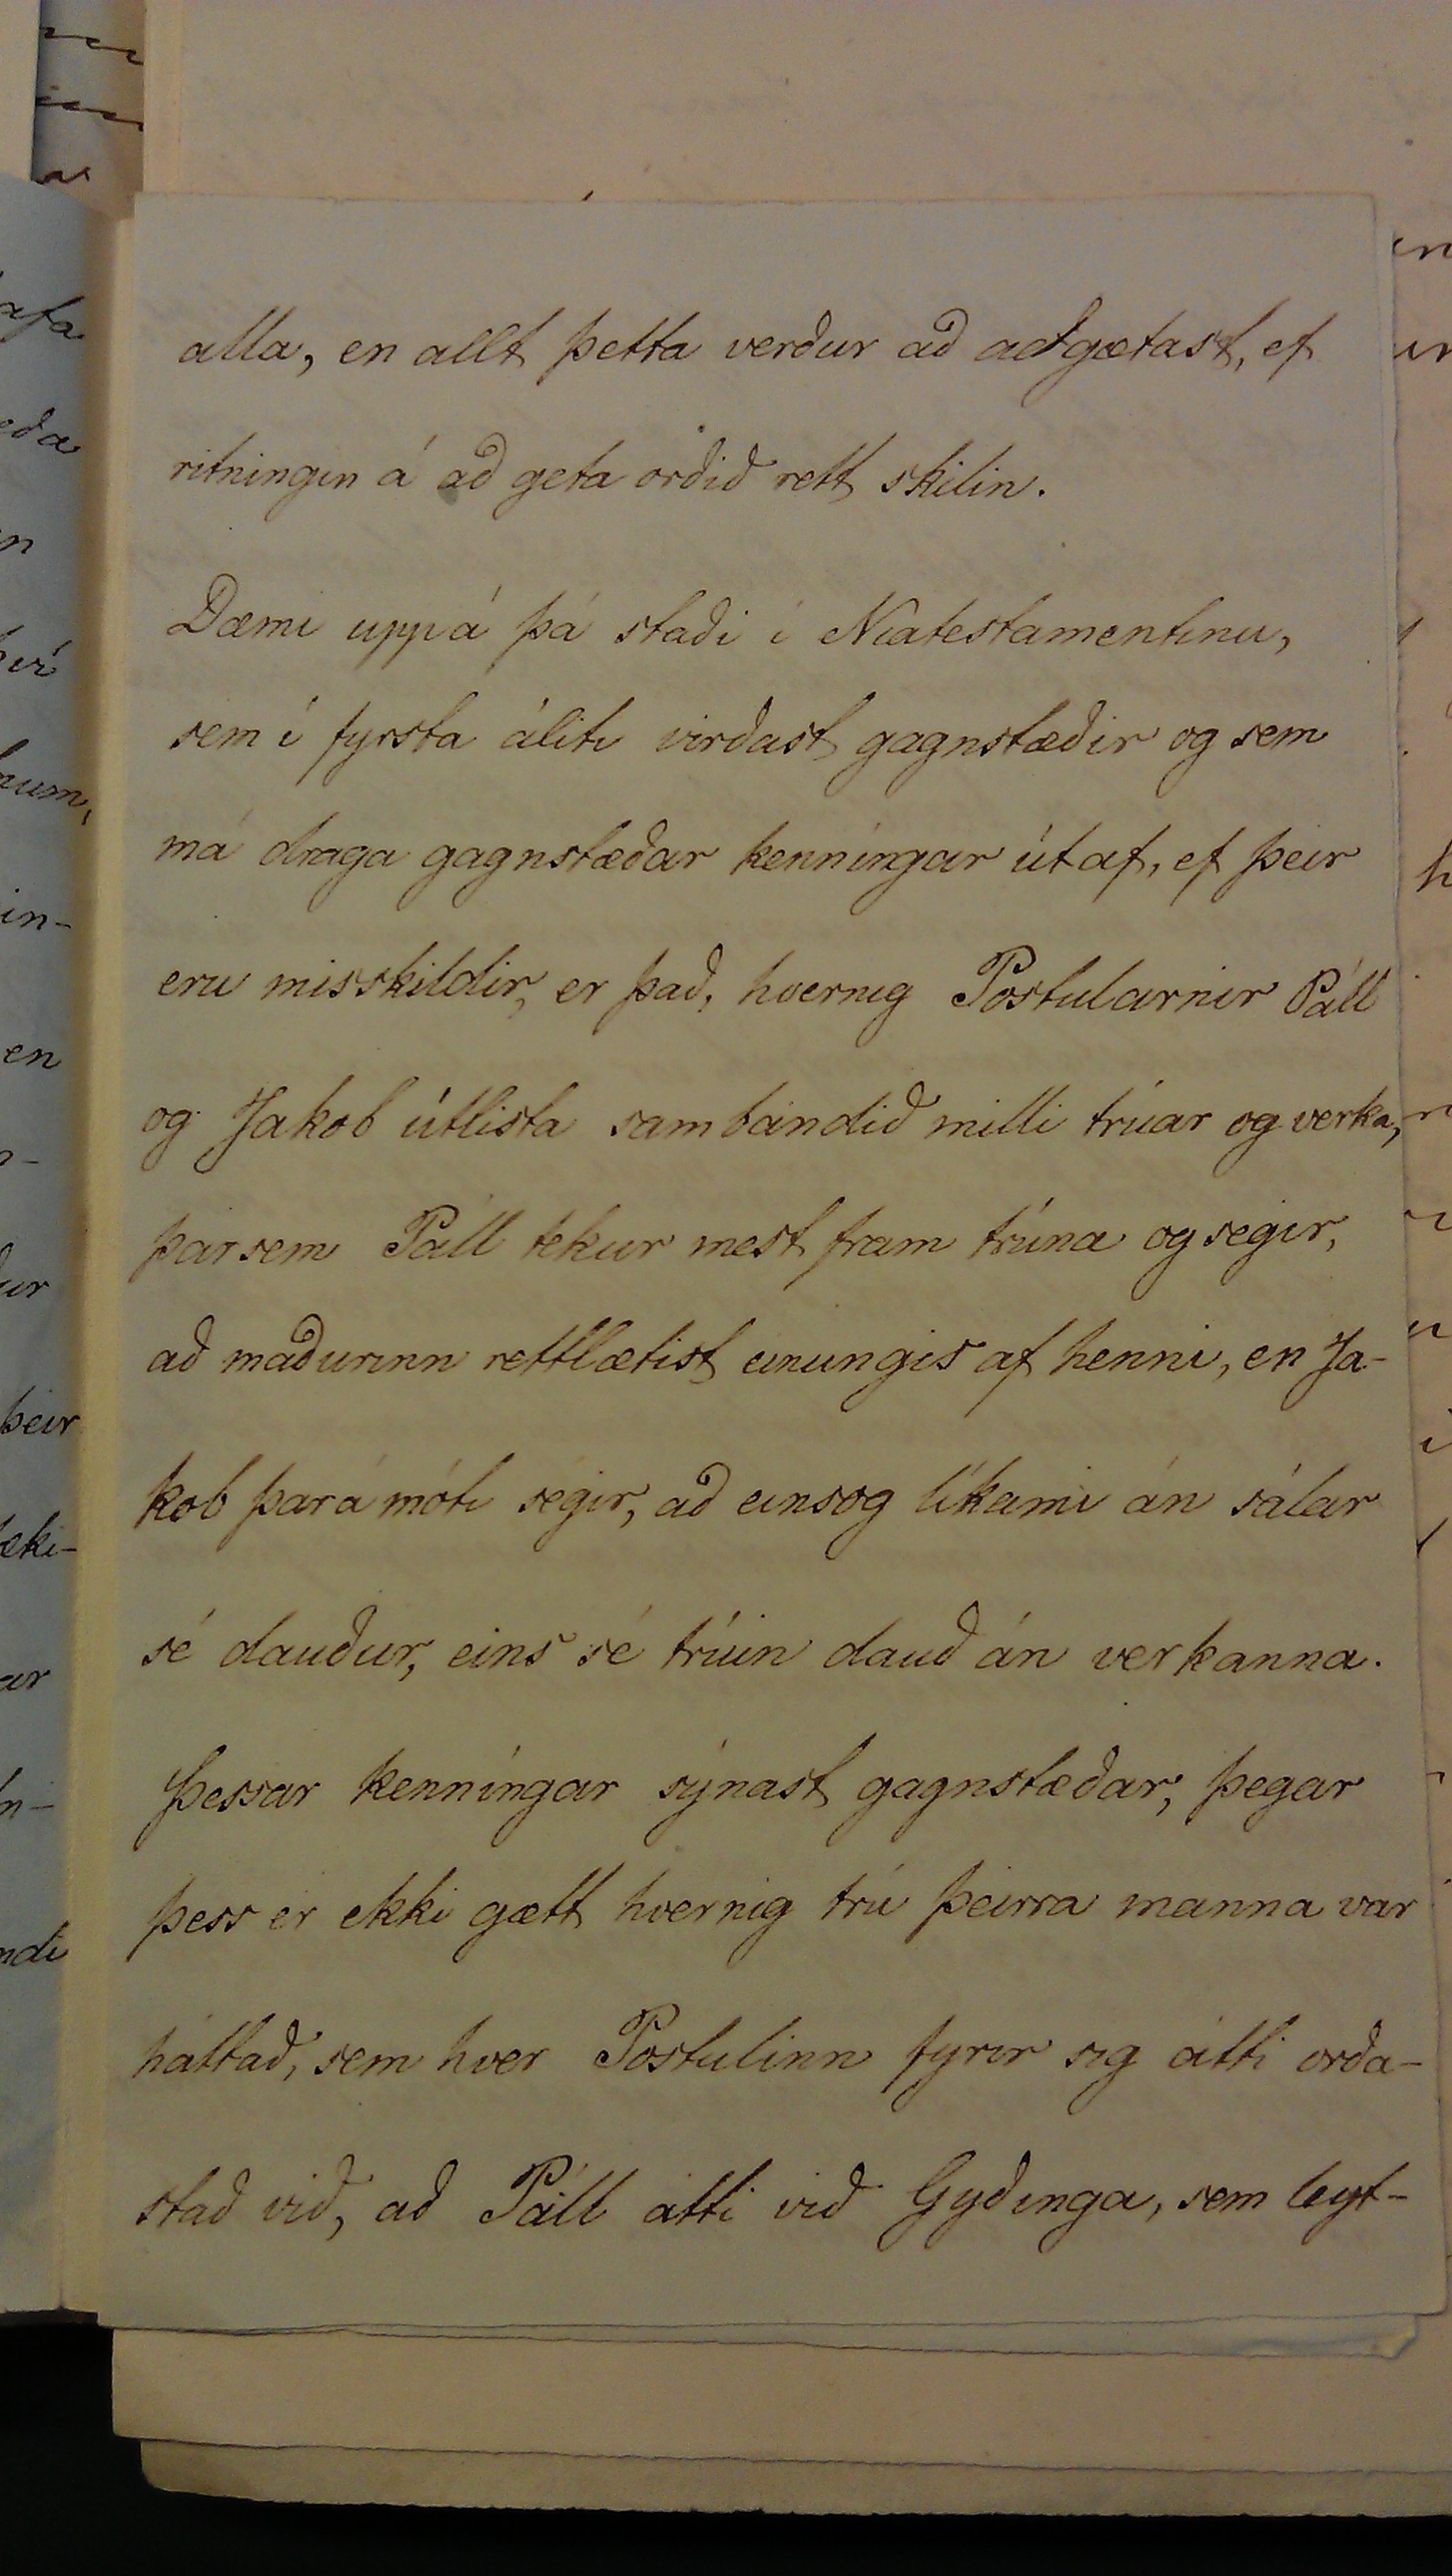 alla, en allt þetta verður að aðgætast, ef
ritningin á að geta orðið rett skilin.
Dæmi uppá þá staði í Níatestamentinu,
sem í fyrsta áliti virðast gagnstæðir og sem
má draga gagnstæðar kenníngar útaf, ef þeir
eru misskildir, er það, hvernig Postularnir Páll
og Jakob útlista sambandið milli trúar og verka,
þarsem Páll tekur mest fram trúna og segir,
að maðurinn rettlætist einungis af henni, en Ja-
kob þará móti segir, að einsog líkami án sálar
sé dauður, eins sé trúin dauð án verkanna.
Þessar kenníngar sýnast gagnstæðar, þegar
þess er ekki gætt hvernig trú þeirra manna var
háttað, sem hver Postulinn fyrir sig átti orða-
stað við, að Páll átti við Gyðinga, sem leyt-